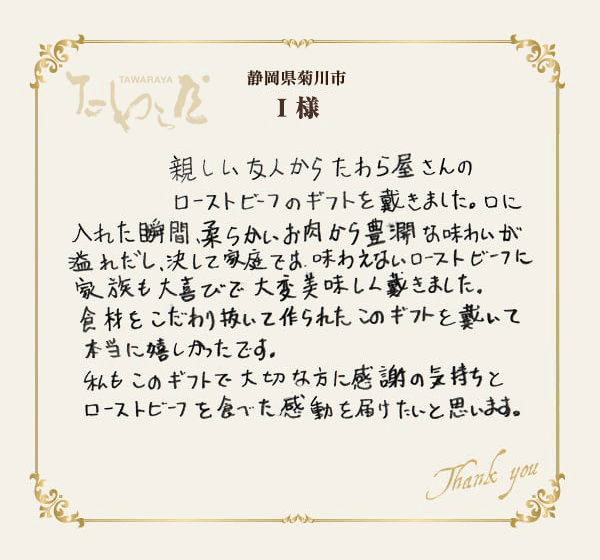 TAWARAYA
たわら屋
静岡県菊川市
I 様
親しい友人からたわら屋さんの
ローストビーフのギフトを戴きました。口に
入れた瞬間、柔らかいお肉から豊潤な味わいが
溢れだし、決して家庭では味わえないローストビーフに
家族も大喜びで大変美味しく戴きました。
食材をこだわり抜いて作られたこのギフトを戴いて
本当に嬉しかったです。
私もこのギフトで大切な方に感謝の気持ちと
ローストビーフを食べた感動を届けたいと思います。
Thank you